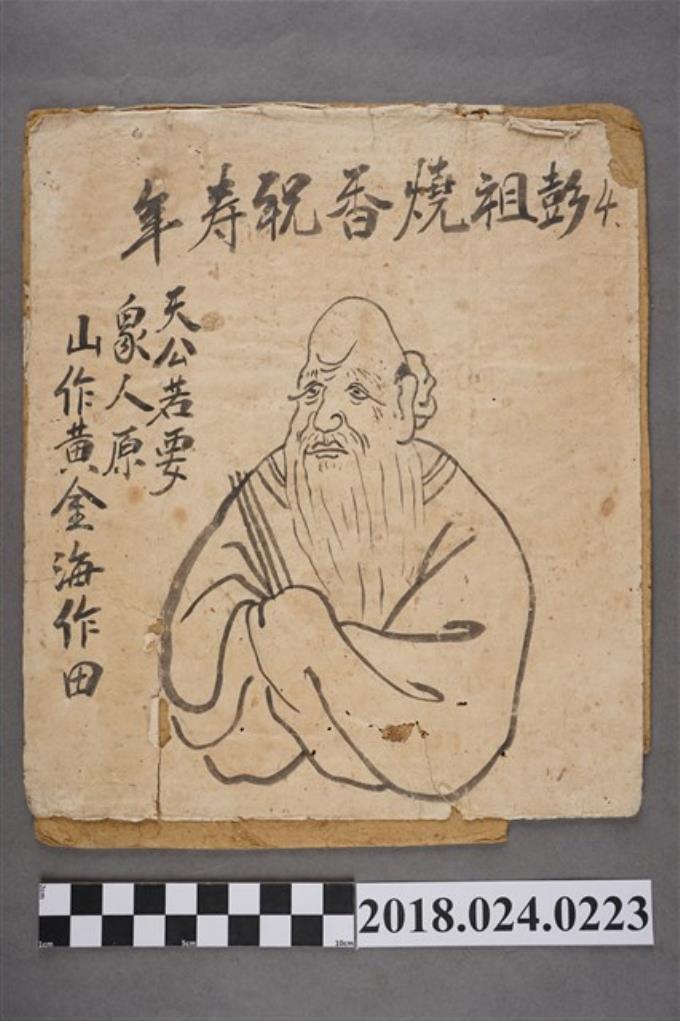 4.彭祖燒香祝寿年
天公若要
象人原
山作黃金海作田
2018.024.0223
1cm 5cm 10cm